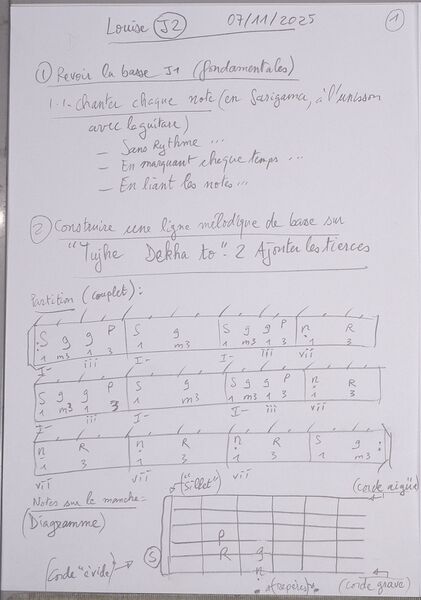 Louise J2 07/11/2025 1
1 Revoir la basse J1 (fondamentales)
1.1- Chanter chaque note (en Sarigama, à l'unisson
avec la guitare)
— Sans Rythme ...
— En marquant chaque temps ...
— En liant les notes ...
2 Construire une ligne mélodique de base sur
"Tujhe Dekha to". 2 Ajouter les tierces
Partition (couplet) :
S g g P S g S g g P n R
1 m3 1 3 1 m3 1 m3 1 3 1 3
I- iii I- I- iii vii
S g g P S g S g g P n R
1 m3 1 3 1 m3 1 m3 1 3 1 3
I- iii I- I- iii vii
n R n R n R S g
1 3 1 3 1 3 1 m3
vii vii vii
Notes sur le manche = ("Sillet") (corde aigüe)
(Diagramme)
P
S R g
n
(Corde "à vide") → (repères) (corde grave)